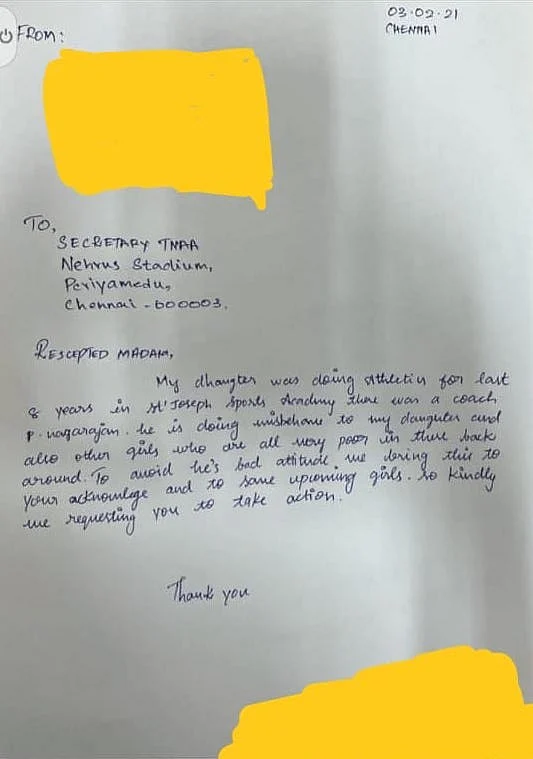 03.02.21
CHENNAI
FROM:
TO,
SECRETARY TNAA
Nehrus Stadium,
Periyamedu,
Chennai - 600003.
RESCEPTED MADAM,
My dhaugter was doing athletics for last
8 years in st' Joseph Sports Academy there was a coach
P. nagarajan. he is doing misbehave to my daughter and
also other girls who are all very poor in there back
around. To avoid he's bad attitude, we bring this to
your acknowlege and to save upcoming girls. so kindly
we requesting you to take action.
Thank you